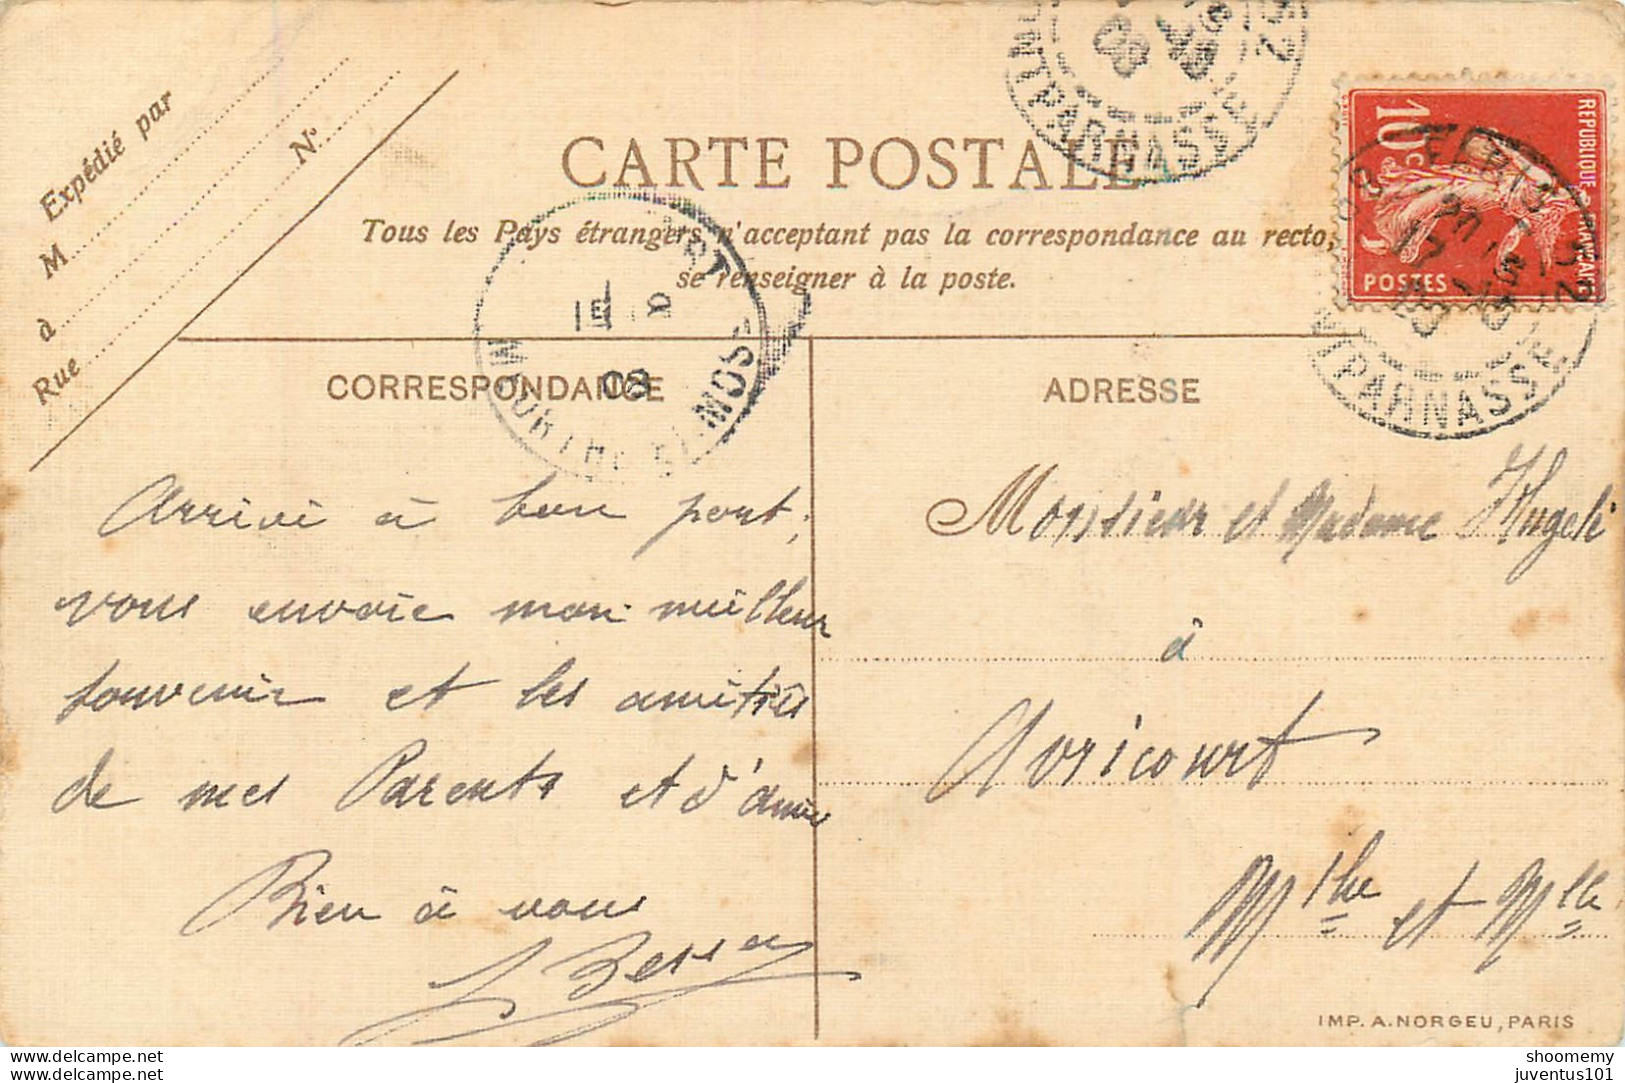 Expédié par
M
à
N°
Rue
CARTE POSTALE
Tous les Pays étrangers n'acceptant pas la correspondance au recto,
se renseigner à la poste.
MTPARNASSE
08
REPUBLIQUE FRANÇAISE
10 c
POSTES
08
TPARNASSE
08
CORRESPONDANCE
ADRESSE
Arrivé à bon port,
vous envoie mon meilleur
souvenir et les amitiés
de mes Parents et d'amie
Bien à vous
Monsieur et Madame Hugelé
à
Avricourt
Mthe et Mlle
IMP. A. NORGEU, PARIS
Expédié par www.delcampe.net
Expédié par www.delcampe.net
shoomemy
juventus101